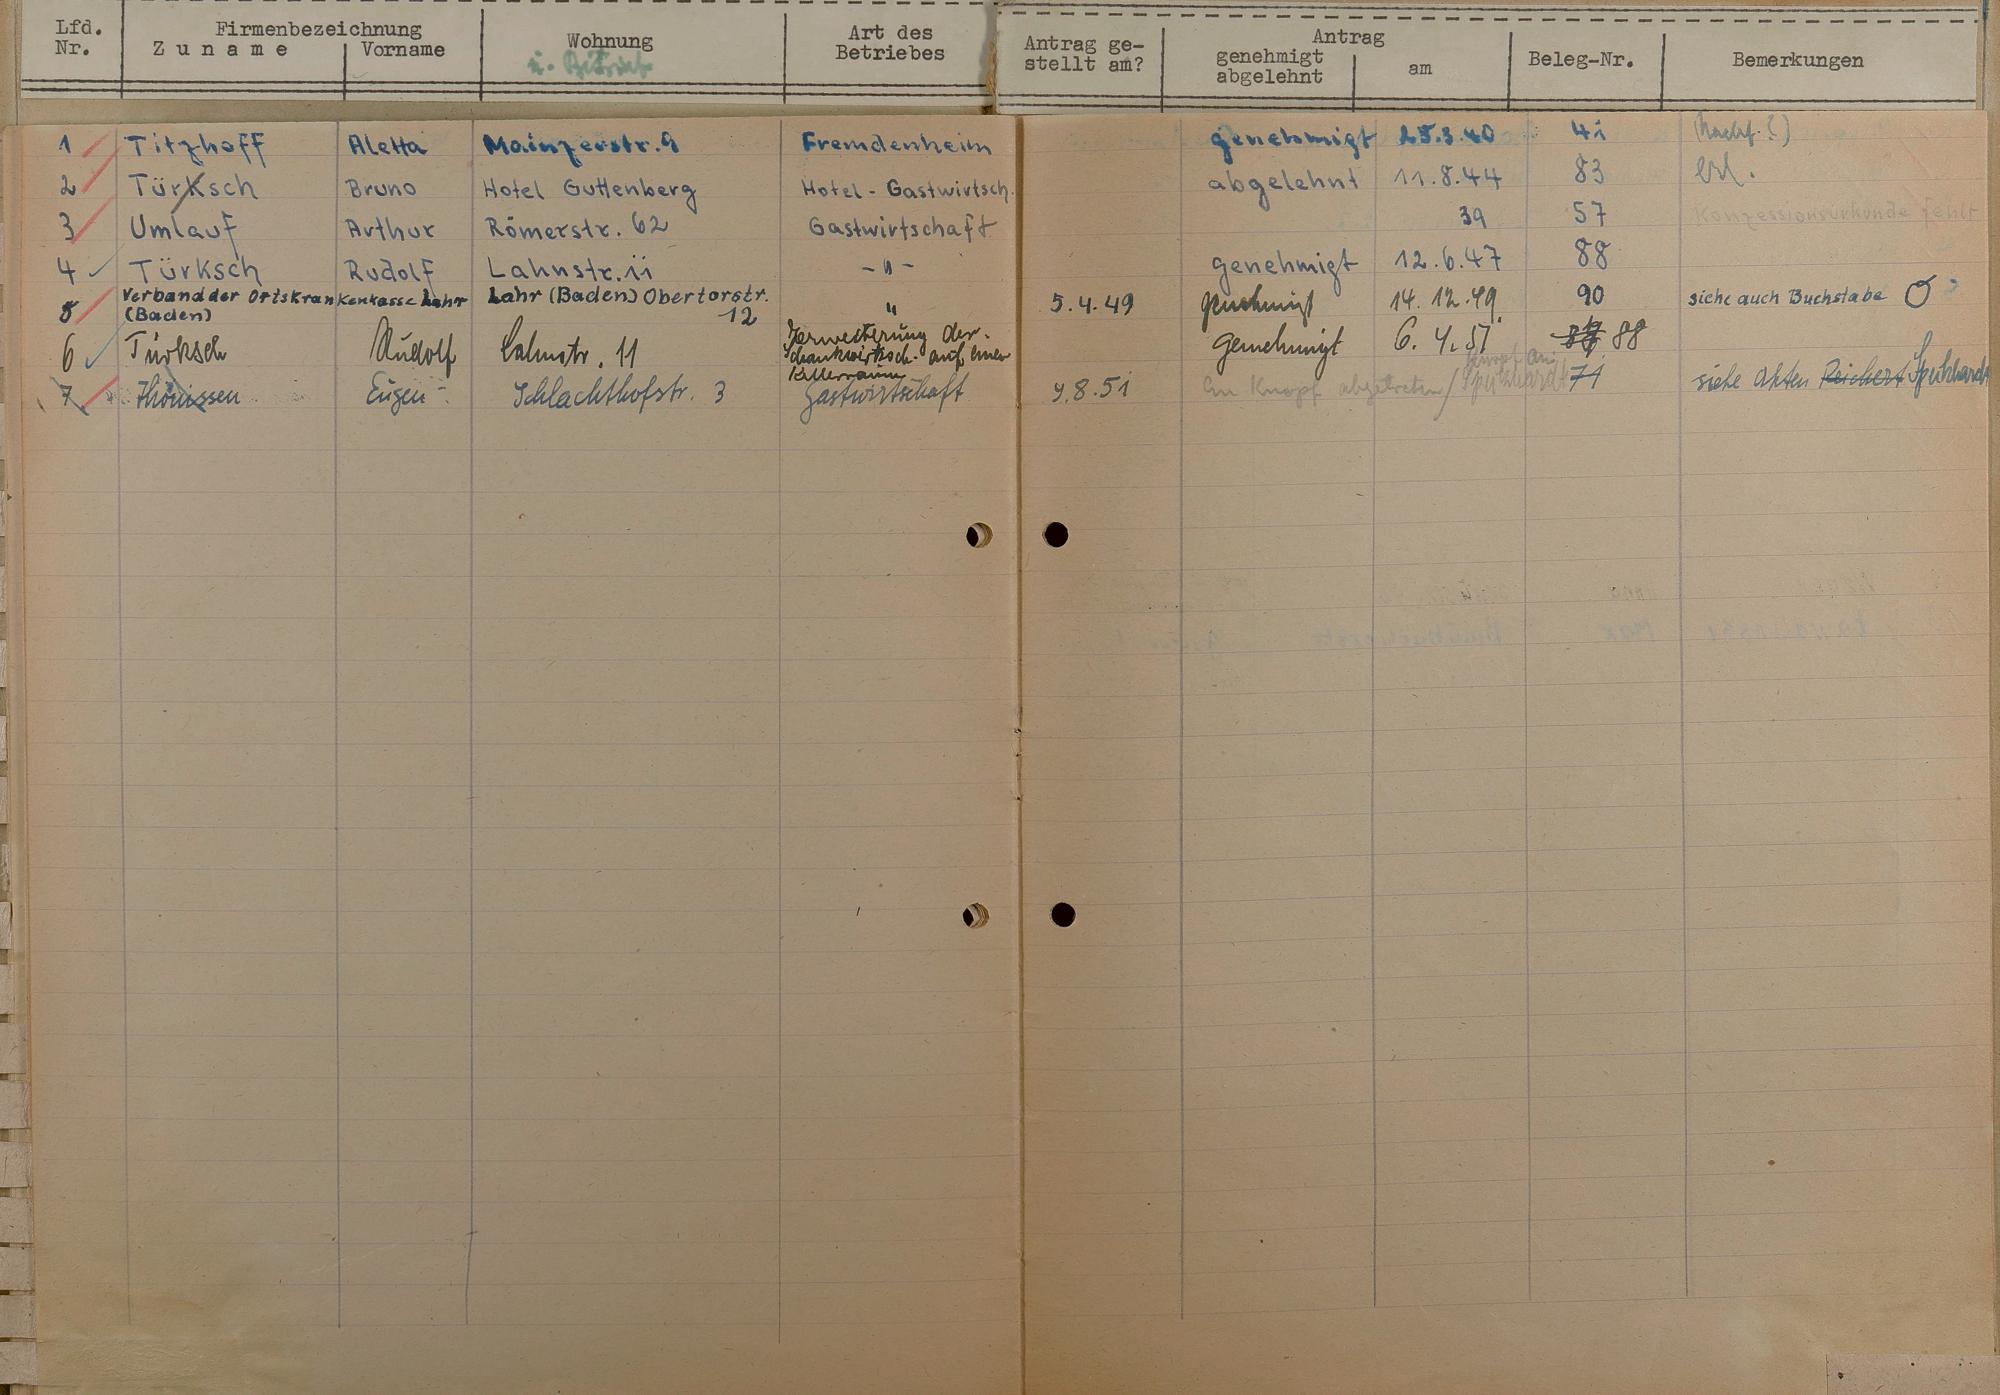 Lfd. Nr. Firmenbezeichnung Zuname Vorname Wohnung u. Betrieb Art des Betriebes Antrag ge-stellt am? Antrag genehmigt abgelehnt am Beleg-Nr. Bemerkungen
1 Titzhoff Aletta Mainzerstr. 9 Fremdenheim genehmigt 25.3.40 41
2 Türksch Bruno Hotel Guttenberg Hotel-Gastwirtsch. abgelehnt 11.8.44 83 erl.
3 Umlauf Arthur Römerstr. 62 Gastwirtschaft 39 57 Konzessionsurkunde fehlt
4 Türksch Rudolf Lahnstr. 11 -"- genehmigt 12.6.47 88
5 Verband der Ortskrankenkasse Lahr (Baden) Lahr (Baden) Obertorstr. 12 " 5.4.49 genehmigt 14.12.49 90 siehe auch Buchstabe O
6 Türksch Rudolf Lahnstr. 11 Erweiterung der Schankwirtsch. auf einen Kellerraum genehmigt 6.4.51 88
7 Thönissen Eugen Schlachthofstr. 3 Gastwirtschaft 9.8.51 An Knopf abgetreten / Knopf an Spuhhardt 71 siehe Akten Reichert Spuhhardt